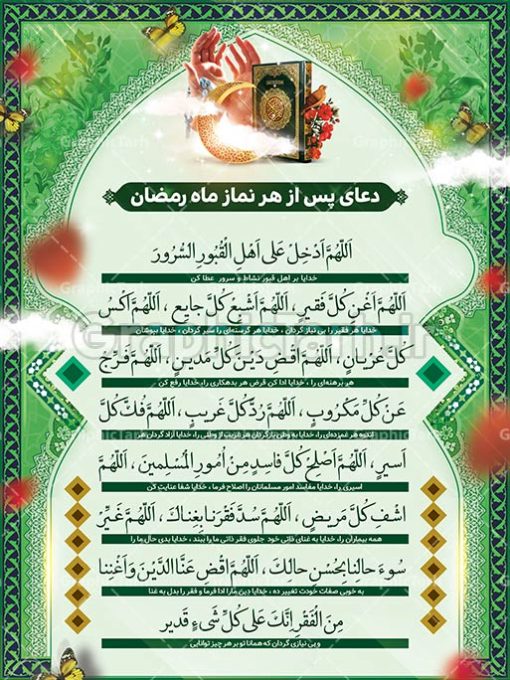 دعای پس از هر نماز ماه رمضان
اَللّهُمَّ اَدْخِلْ عَلى اَهْلِ الْقُبُورِ السُّرُورَ
خدایا بر اهل قبور نشاط و سرور عطا کن
اَللّهُمَّ اَغْنِ كُلَّ فَقيرٍ ، اَللّهُمَّ اَشْبِعْ كُلَّ جايِعٍ ، اَللّهُمَّ اكْسُ
خدایا هر فقیر را بی نیاز گردان ، خدایا هر گرسنه‌ای را سیر گردان ، خدایا بپوشان
كُلَّ عُرْيانٍ ، اَللّهُمَّ اقْضِ دَيْنَ كُلِّ مَدينٍ ، اَللّهُمَّ فَرِّجْ
هر برهنه‌ای را ، خدایا ادا کن قرض هر بدهکاری را، خدایا رفع کن
عَنْ كُلِّ مَكْرُوبٍ ، اَللّهُمَّ رُدَّ كُلَّ غَريبٍ ، اَللّهُمَّ فُكَّ كُلَّ
اندوه هر غمزده‌ای را، خدایا به وطن بازگردان هر غریب از وطنی را، خدایا آزاد گردان هر
اَسيرٍ ، اَللّهُمَّ اَصْلِحْ كُلَّ فاسِدٍ مِنْ اُمُورِ الْمُسْلِمينَ ، اَللّهُمَّ
اسیری را، خدایا مفاسد امور مسلمانان را اصلاح فرما ، خدایا شفا عنایت کن
اشْفِ كُلَّ مَريضٍ ، اَللّهُمَّ سُدَّ فَقْرَنا بِغِناكَ ، اَللّهُمَّ غَيِّرْ
همه بیماران را، خدایا به غنای ذاتی خود جلوی فقر ذاتی ما را ببند ، خدایا بدی حال ما را
سُوءَ حالِنا بِحُسْنِ حالِكَ ، اَللّهُمَّ اقْضِ عَنَّا الدَّيْنَ وَاَغْنِنا
به خوبی صفات خودت تغییر ده ، خدایا دین ما را ادا فرما و فقر را بدل به غنا
مِنَ الْفَقْرِ اِنَّكَ عَلى كُلِّ شَىءٍ قَدير
وبی نیازی گردان که همانا تو بر هر چیز توانایی
GraphicTarh.ir